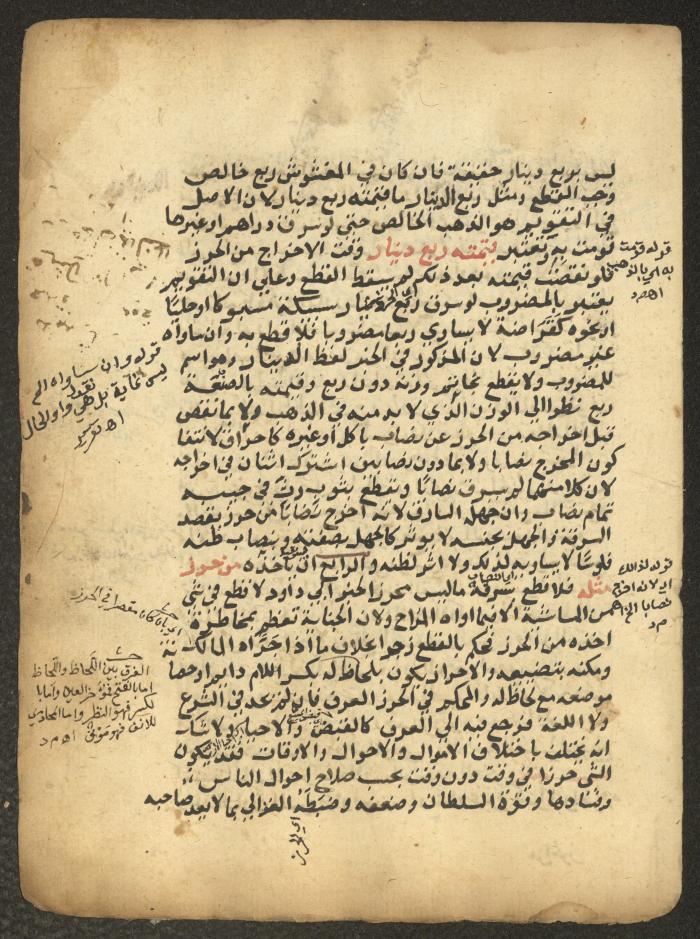 ليس بربع دينار حقيقة فان كان في المغشوش ربع خالص
وجب القطع ومثل ربع الدينار ما قيمته ربع دينار لان الاصل
في التقويم هو الذهب الخالص حتى لو سرق دراهم او غيرها
قومت به وتعتبر قيمته ربع دينار وقت الاخراج من الحرز
فلو نقصت قيمته بعد ذلك لم يسقط القطع وعلى ان التقويم
يعتبر بالمضروب لو سرق ربع دينار سبيكة مسبوكا او حليا
او نحوه كقراضة لا يساوي ربعا مضروبا فلا قطع به وان ساواه
غير مضروب لان المذكور في الخبر لفظ الدينار وهو اسم
للمضروب ولا يقطع بخاتم وزنه دون ربع وقيمته بالصنعة
ربع نظرا الى الوزن الذي لا بد منه في الذهب ولا بما نقص
قبل اخراجه من الحرز عن نصاب باكل او غيره كاحراق لانتفا
كون المخرج نصابا ولا بما دون نصابين اشترك اثنان في اخراجه
لان كلا منهما لم يسرق نصابا ويقطع بثوب رث في جيبه
تمام نصاب وان جهله السارق لانه اخرج نصابا من حرز بقصد
السرقة والجهل بجنسه لا يوثر كالجهل بصفته وبنصاب ظنه
فلوسا لا يساويه لذلك ولا اثر لظنه والرابع ان ياخذه من حرز
مثله فلا قطع بسرقة ما ليس محرزا لخبر ابي داود لا قطع في شي
من الماشية الا فيما اواه المراح ولان الجناية تعظم بمخاطرة
اخذه من الحرز فحكم بالقطع زجرا بخلاف ما اذا جراه المالك
ومكنه بتضييعه والاحراز يكون بلحاظ له بكسر اللام دايم او حصا
موضعه مع لحاظ له والمحكم في الحرز العرف فانه لم يحد في الشرع
ولا اللغة فرجع فيه الى العرف كالقبض والاحيا ولا شك
انه يختلف باختلاف الاموال والاحوال والاوقات فقد يكون
الشي حرزا في وقت دون وقت بحسب صلاح احوال الناس
وفسادها وقوة السلطان وضعفه وضبطه الغزالي بما لا يعد صاحبه
قوله قومت
به اي بالذهب
اهـ م د
قوله وان ساواه الخ
ليس غاية بل هي واو الحال
قوله لذلك
اي لانه اخرج
نصابا الخ
م د
الفرق بين اللحاظ واللحاظ
اما بالفتح فهو مؤخر العين واما با
لكسر فهو النظر
اهـ م د
اي الحرز